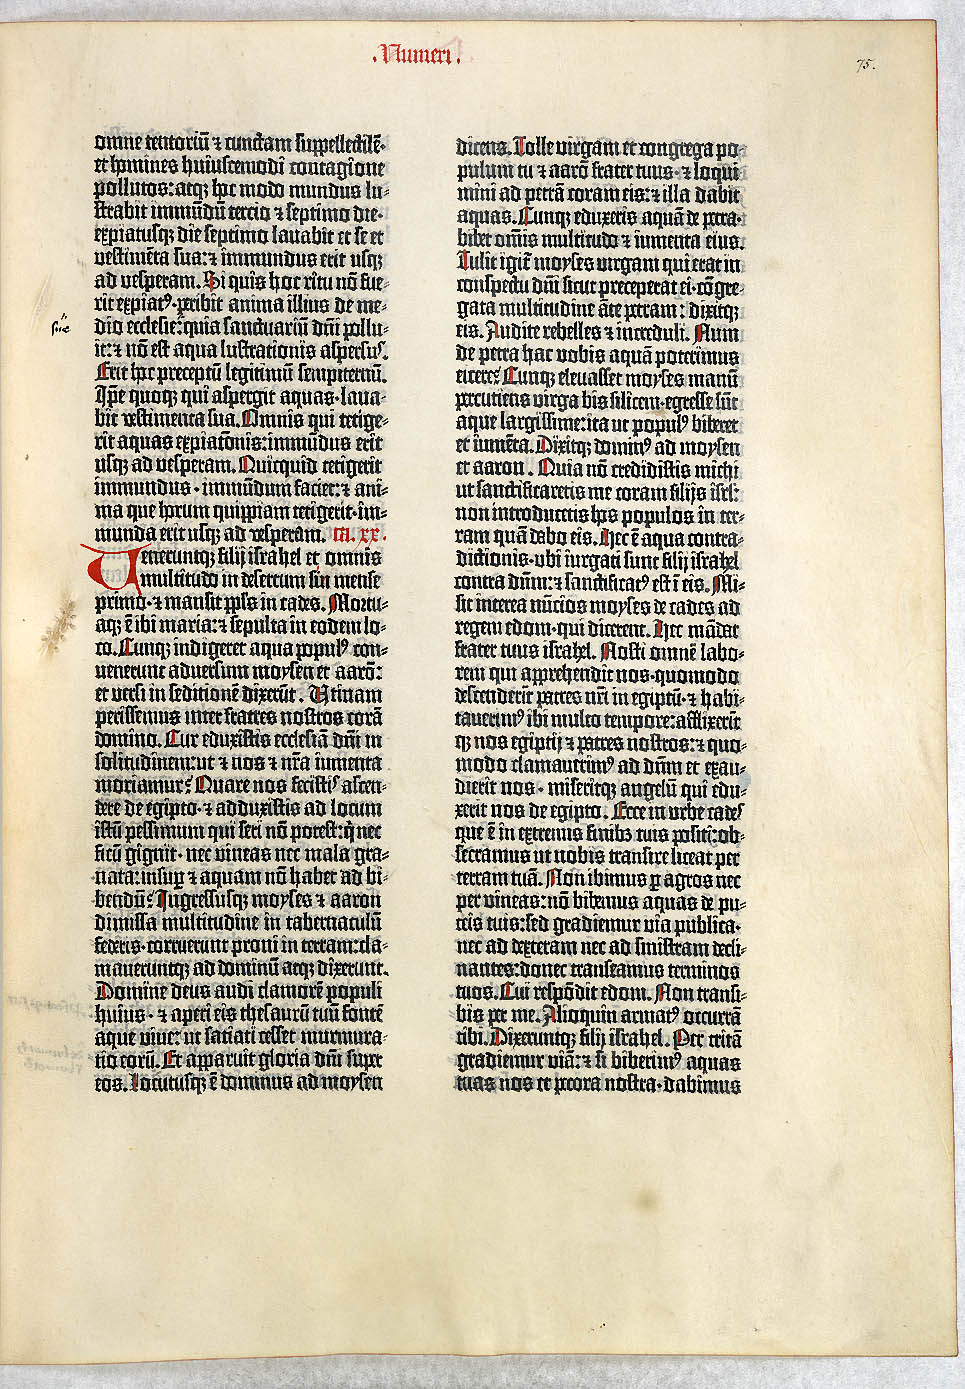 .Numeri.
75.
omne tentoriū ⁊ cunctam suppellectilē·
et homines huiuscemodi contagione
pollutos: atqꝫ hoc modo mundus lu-
strabit immūdū tercio ⁊ septimo die·
expiatusqꝫ die septimo lavabit et se et
vestimēta sua: ⁊ immundus erit usqꝫ
ad vesperam. Si quis hoc ritu nō fue-
rit expiatꝰ· peribit anima illius de me-
dio ecclesie: quia sanctuariū dn̄i pollu-
it: ⁊ nō est aqua lustrationis aspersus.
Erit hoc preceptū legitimū sempiternū.
Ip̄e quoqꝫ qui aspergit aquas· lava-
bit vestimenta sua. Omnis qui tetige-
rit aquas expiatōnis: immūdus erit
usqꝫ ad vesperam. Quicquid tetigerit
immundus· immūdum faciet: ⁊ ani-
ma que horum quippiam tetigerit· im-
munda erit usqꝫ ad vesperam. ca. xx.
Veneruntqꝫ filij israhel et omnis
multitudo in desertum sin mense
primo· ⁊ mansit pp̄ls in cades. Mortu-
aqꝫ ē ibi maria: ⁊ sepulta in eodem lo-
co. Cunqꝫ indigeret aqua populꝰ con-
venerunt adversum moysen et aarō:
et versi in seditionē dixerūt. Utinam
perissemus inter fratres nostros corā
domino. Cur eduxistis ecclesiā dn̄i in
solitudinem: ut ⁊ nos ⁊ nr̄a iumenta
moriamur? Quare nos fecistis ascen-
dere de egipto· ⁊ adduxistis ad locum
istū pessimum qui seri nō potest: q̄ nec
ficū gignit· nec vineas nec mala gra-
nata: insuꝑ ⁊ aquam nō habet ad bi-
bendū? Ingressusqꝫ moyses ⁊ aaron
dimissa multitudine in tabernaculū
federis· corruerunt proni in terram: cla-
maveruntqꝫ ad dominū atqꝫ dixerunt.
Domine deus audi clamorē populi
huius· ⁊ aperi eis thesaurū tuū fontē
aque vive: ut satiati cesset murmura-
tio eorū. Et apparuit gloria dn̄i super
eos. Locutusqꝫ ē dominus ad moysen
dicens. Tolle virgam et congrega po-
pulum tu ⁊ aarō frater tuus· ⁊ loqui
mini ad petrā coram eis: ⁊ illa dabit
aquas. Cunqꝫ eduxeris aquā de petra·
bibet om̄is multitudo ⁊ iumenta eius.
Tulit igit̄ moyses virgam qui erat in
conspectu dn̄i sicut preceperat ei· cōgre-
gata multitudine āte petram: dixitqꝫ
eis. Audite rebelles ⁊ increduli. Num
de petra hac vobis aquā poterimus
eicere? Cunqꝫ elevasset moyses manū
percutiens virga bis silicem· egresse sūt
aque largissime: ita ut populꝰ biberet
et iumēta. Dixitqꝫ dominꝰ ad moysen
et aaron. Quia nō credidistis michi
ut sanctificaretis me coram filijs isrl̄:
non introducetis hos populos in ter-
ram quā dabo eis. Hec ē aqua contra-
dictionis· ubi iurgati sunt filij israhel
contra dn̄m: ⁊ sanctificatꝰ est ī eis. Mi-
sit interea nūcios moyses de cades ad
regem edom· qui dicerent. Hec mādat
frater tuus israhel. Nosti omnē labo-
rem qui apprehendit nos· quomodo
descenderīt patres nr̄i in egiptū· ⁊ habi-
taverimꝰ ibi multo tempore: afflixerīt
qꝫ nos egiptij ⁊ patres nostros: ⁊ quo-
modo clamaverimꝰ ad dn̄m et exau-
dierit nos· miseritqꝫ angelū qui edu-
xerit nos de egipto. Ecce in urbe cades
que ē in extremis finibꝫ tuis positi: ob-
secramus ut nobis transire liceat per
terram tuā. Non ibimus ꝑ agros nec
per vineas: nō bibemus aquas de pu-
teis tuis: sed gradiemur via publica·
nec ad dexteram nec ad sinistram decli-
nantes: donec transeamus terminos
tuos. Cui respōdit edom. Non transi-
bis per me. Alioquin armatꝰ occurrā
tibi. Dixeruntqꝫ filij israhel. Per tritā
gradiemur viā: ⁊ si biberimꝰ aquas
tuas nos et pecora nostra· dabimus